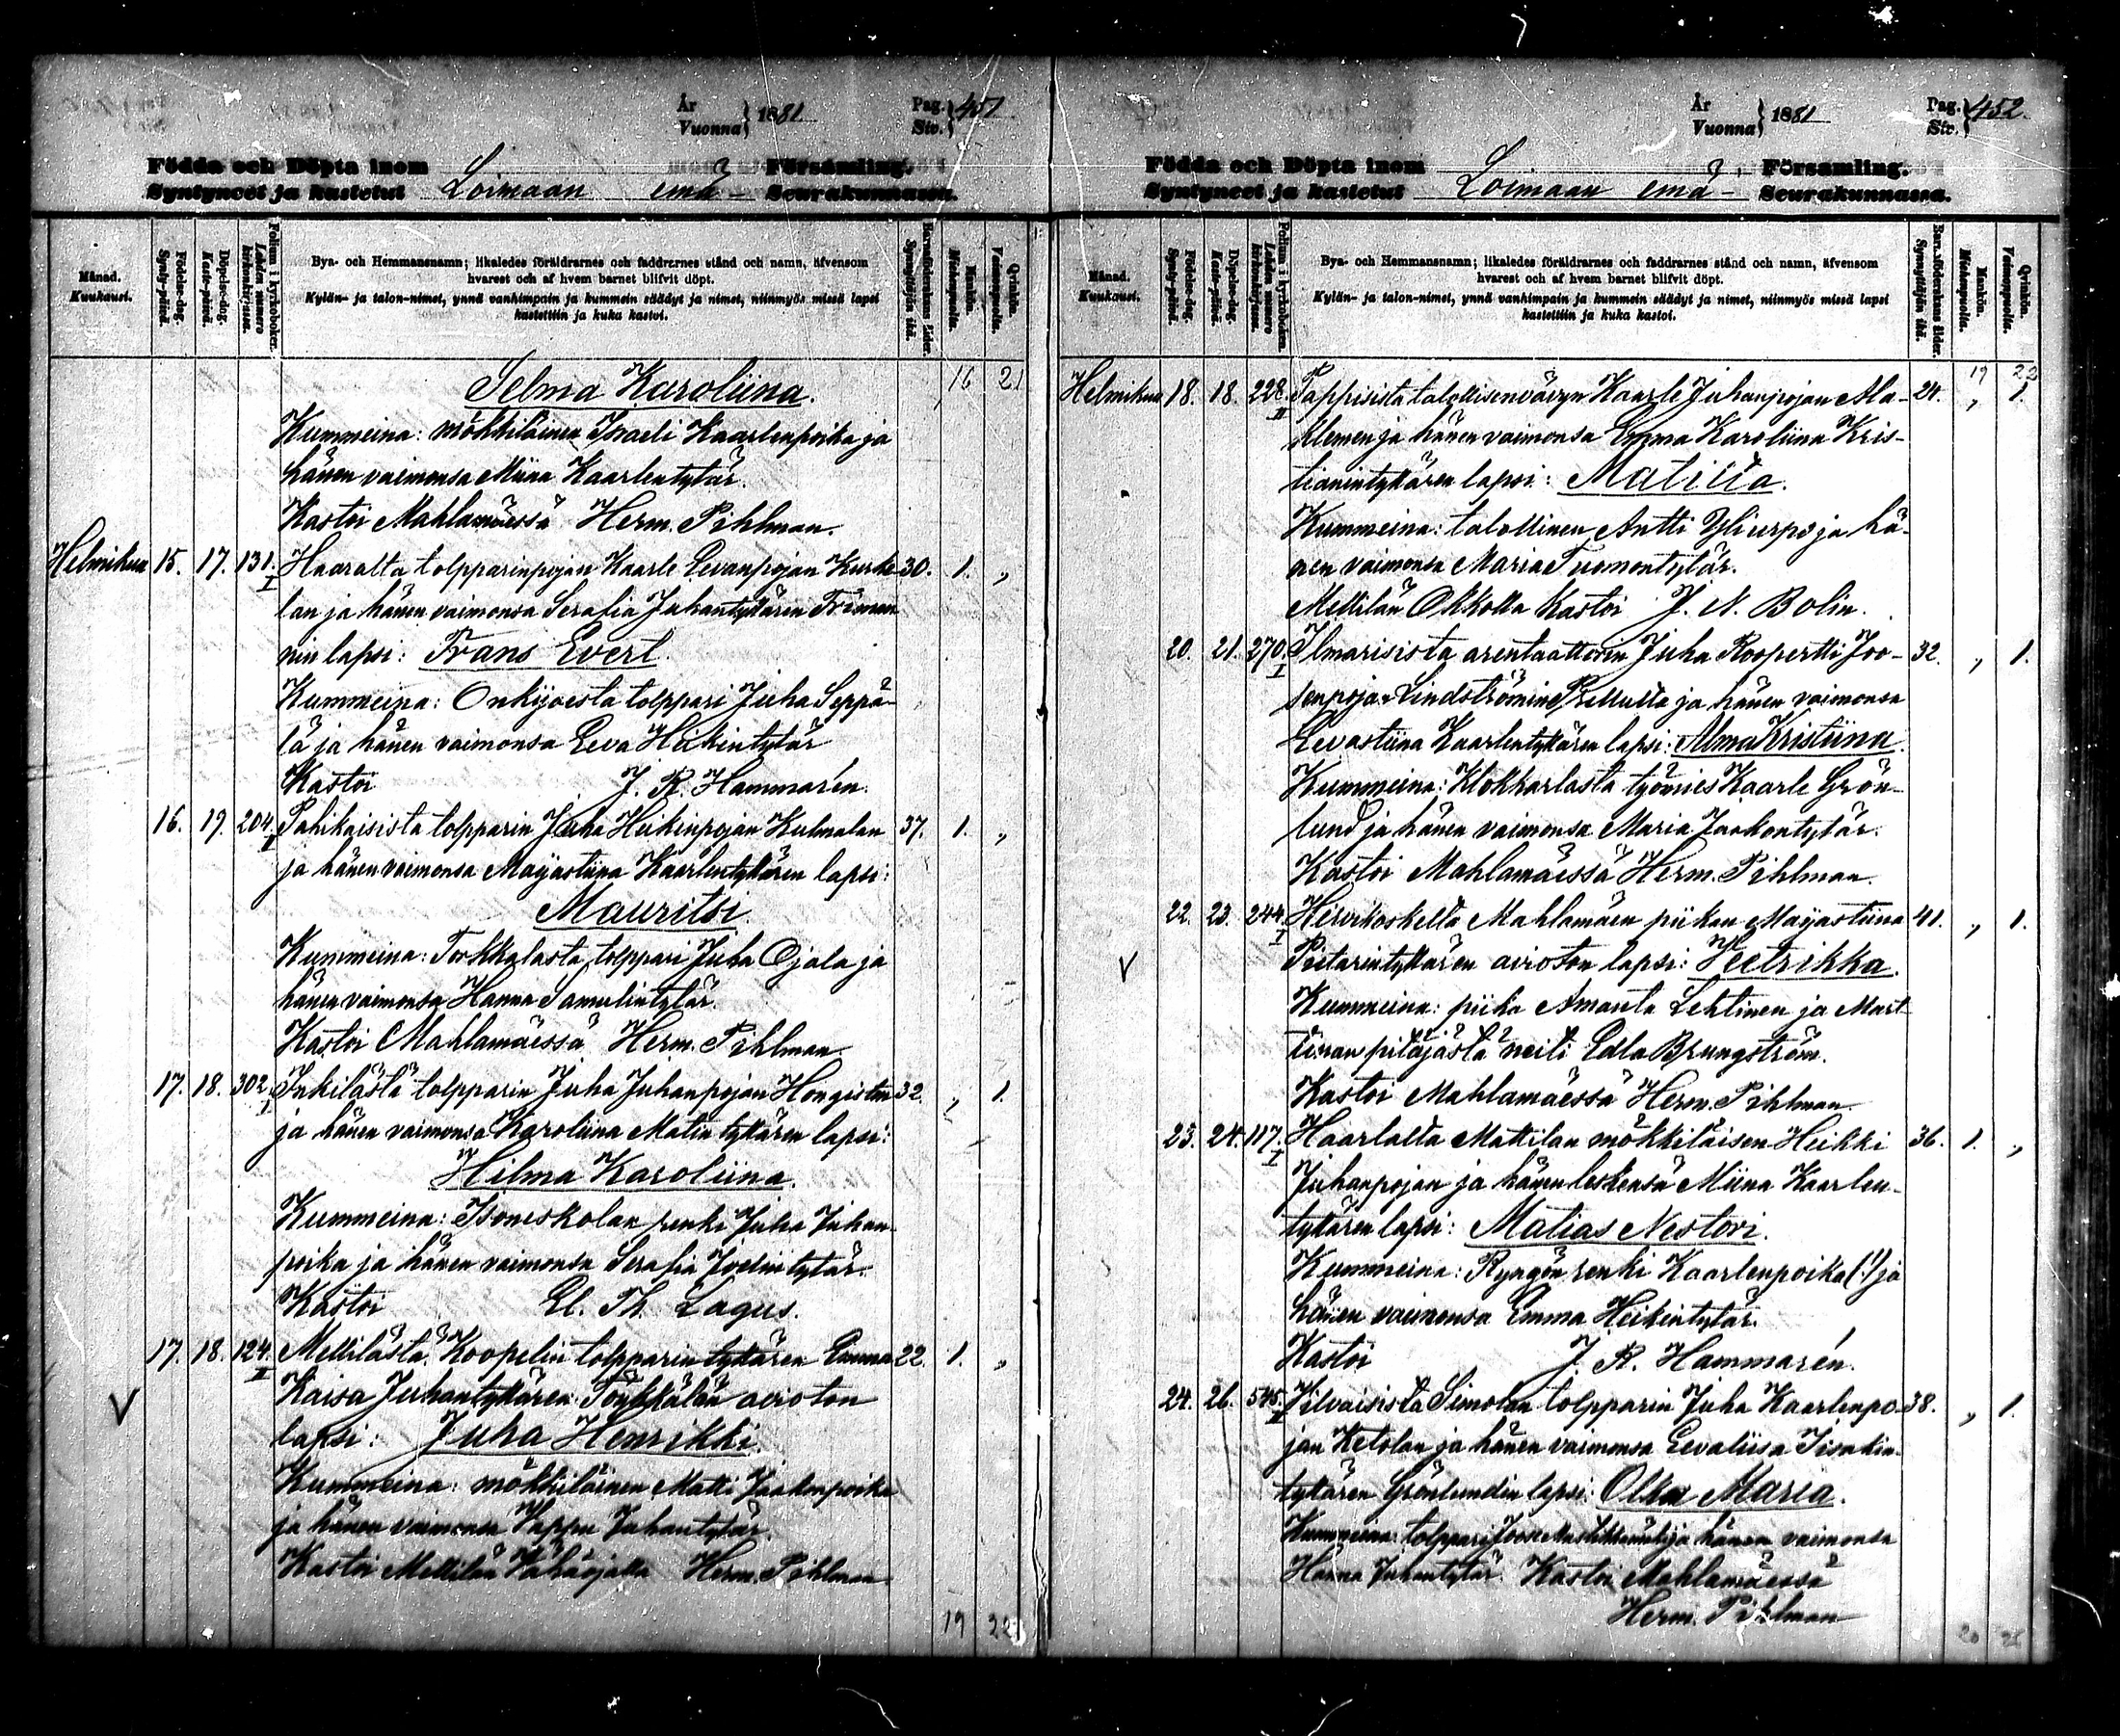 År
Vuonna } 1881
Pag.
Siv. } 451
Födda och Döpta inom Församling.
Syntyneet ja kastetut Loimaan emä- Seurakunnassa.
Månad.
Kuukausi.
Födelse-dag.
Synty-päivä.
Döpelse-dag.
Kaste-päivä.
Folium i kyrkoboken.
Lehden numero kirkonkirjassa.
Bya- och Hemmansnamn; likaledes föräldrarnes och faddrarnes stånd och namn, äfvensom
hvarest och af hvem barnet blifvit döpt.
Kylän- ja talon-nimet, ynnä vanhimpain ja kummein säädyt ja nimet, niinmyös missä lapsi
kastettiin ja kuka kastoi.
Barnaföderskans ålder.
Synnyttäjän ikä.
Mankön.
Miehenpuolta.
Qvinkön.
Vaimonpuolta.
Selma Karoliina. 16 21
Kummeina: mökkiläinen Israeli Kaarlenpoika ja
hänen vaimonsa Miina Kaarlentytär.
Kastoi Mahlamäessä Herm. Pihlman.
Helmikuu 15. 17. 131. I Haaralta tolpparinpojan Kaarle Eevanpojan Kurke- 30. 1. „
lan ja hänen vaimonsa Serafia Juhantyttären Friman
nin lapsi: Frans Evert.
Kummeina: Onkijoesta tolppari Juha Seppä-
lä ja hänen vaimonsa Eeva Heikintytär
Kastoi J. R. Hammarén.
16. 19. 204. I Pahikaisista tolpparin Juha Heikinpojan Kulmalan 37. 1. „
ja hänen vaimonsa Maijastiina Kaarlentyttären lapsi:
Mauritsi.
Kummeina: Torkkalasta tolppari Juha Ojala ja
hänen vaimonsa Hanna Samulintytär.
Kastoi Mahlamäessä Herm. Pihlman.
17. 18. 302. I Inkilästä tolpparin Juha Juhanpojan Hongiston 32. „ 1.
ja hänen vaimonsa Karoliina Matin tyttären lapsi:
Hilma Karoliina.
Kummeina: Isoneskolan renki Juha Juhan-
poika ja hänen vaimonsa Serafia Joelintytär.
Kastoi El. Th. Lagus.
17. 18. 124. II Mellilästä, Koopelin tolpparin tyttären Emma 22. 1. „
Kaisa Juhantyttären Tönkkälän avioton
lapsi: Juha Henrikki.
Kummeina: mökkiläinen Matti Jaakonpoika
ja hänen vaimonsa Vappu Juhantytär.
Kastoi Mellilän Vähäojalla Herm. Pihlman.
19 22
År
Vuonna } 1881
Pag.
Siv. } 452.
Födda och Döpta inom Församling.
Syntyneet ja kastetut Loimaan emä- Seurakunnassa.
Månad.
Kuukausi.
Födelse-dag.
Synty-päivä.
Döpelse-dag.
Kaste-päivä.
Folium i kyrkoboken.
Lehden numero kirkonkirjassa.
Bya- och Hemmansnamn; likaledes föräldrarnes och faddrarnes stånd och namn, äfvensom
hvarest och af hvem barnet blifvit döpt.
Kylän- ja talon-nimet, ynnä vanhimpain ja kummein säädyt ja nimet, niinmyös missä lapsi
kastettiin ja kuka kastoi.
Barnaföderskans ålder.
Synnyttäjän ikä.
Mankön.
Miehenpuolta.
Qvinkön.
Vaimonpuolta.
19 22
Helmikuu 18. 18. 228. II Pappisista talollisenvävyn Kaarle Juhanpojan Ala- 24. „ 1.
Klemen ja hänen vaimonsa Emma Karoliina Kris-
tianintyttären lapsi: Matilta.
Kummeina: talollinen Antti Yliurpo ja hä-
nen vaimonsa Maria Tuomontytär.
Mellilän Okkolla Kastoi J. N. Bolin.
20. 21. 270. I Ilmarisista arentaattorin Juha Roopertti Joo- 32. „ 1.
senpojan Lindströmin Prellulta ja hänen vaimonsa
Eevastiina Kaarlentyttären lapsi: Alma Kristiina.
Kummeina: Klokkarlasta työmies Kaarle Grön-
lund ja hänen vaimonsa Maria Jaakontytär.
Kastoi Mahlamäessä Herm. Pihlman.
22. 23. 244. I Hirvikoskelta Mahlamäen piikan Maijastiina 41. „ 1.
Pietarintyttären avioton lapsi: Veetrikka.
Kummeina: piika Amanta Lehtinen ja Mart-
tinan pitäjästä neiti Edla Brungström.
Kastoi Mahlamäessä Herm. Pihlman.
23. 24. 117. I Haarlalta Mattilan mökkiläisen Heikki 36. 1. „
Juhanpojan ja hänen leskensä Miina Kaarlen-
tyttären lapsi: Matias Nestori.
Kummeina: Ryngön renki Kaarlenpoika (!) ja
hänen vaimonsa Emma Heikintytär.
Kastoi J. R. Hammarén.
24. 26. 545. II Vilvaisista Simolan tolpparin Juha Kaarlenpo- 38. „ 1.
jan Ketolan ja hänen vaimonsa Eevaliisa Iisakin-
tyttären Grönlundin lapsi: Olka Maria.
Kummeina: tolppari Joose ja hänen vaimonsa
Hanna Juhantytär. Kastoi Mahlamäessä
Herm. Pihlman
20